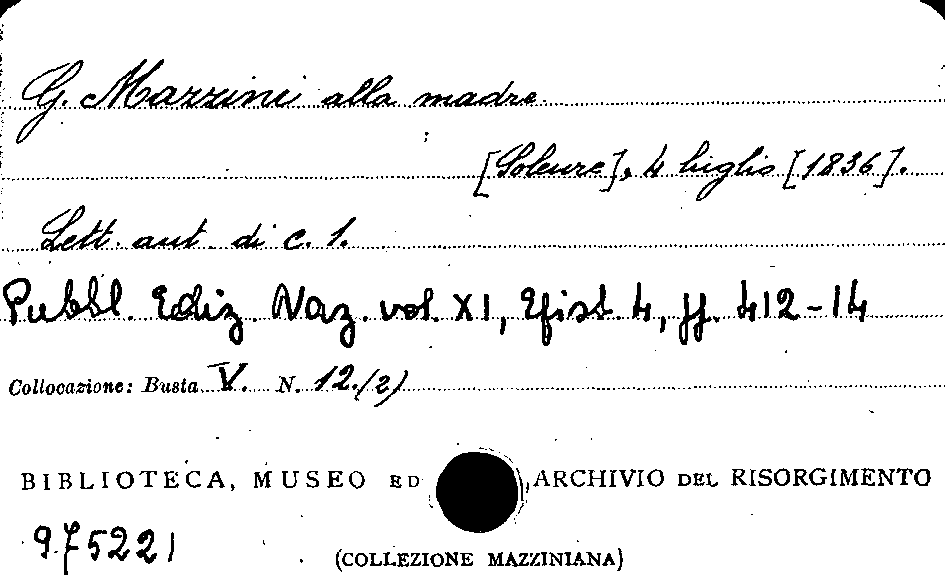 G. Mazzini alla madre
[Soleure], 4 luglio [1836].
Lett. aut. di c. 1.
Pubbl. Ediz. Naz. vol. XI, Epist. 4, pp. 412-14
Collocazione: Busta V. N. 12./2)
BIBLIOTECA, MUSEO ED ARCHIVIO DEL RISORGIMENTO
975221
(COLLEZIONE MAZZINIANA)